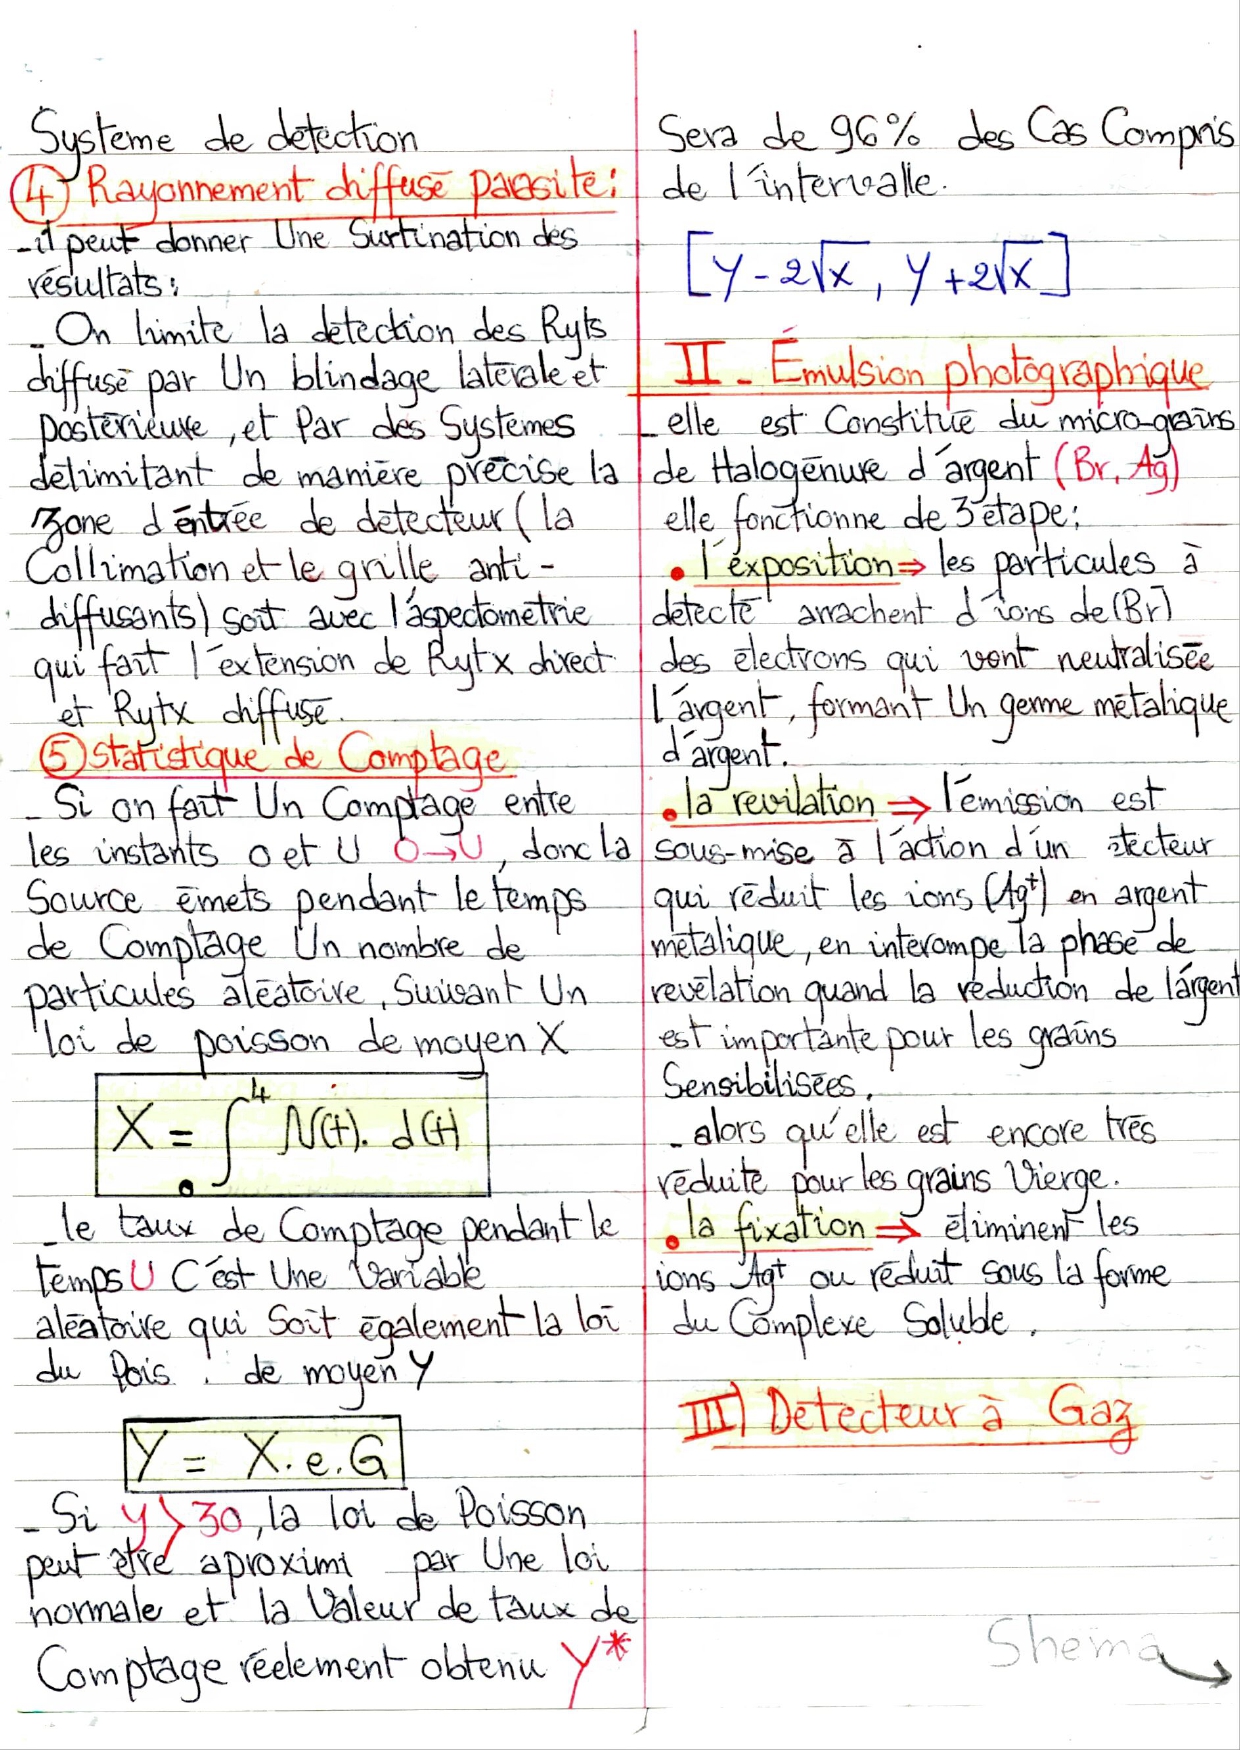 Système de détection
④ Rayonnement diffusé parasite:
- il peut donner Une Surtination des
résultats:
- On limite la détection des Ryts
diffusé par Un blindage latérale et
postérieure, et Par des Systèmes
délimitant de manière précise la
zone d'entrée de détecteur (la
Collimation et le grille anti-
diffusants) soit avec l'aspectométrie
qui fait l'extension de Rytx direct
et Rytx diffusé.
⑤ Statistique de Comptage
- Si on fait Un Comptage entre
les instants 0 et U 0→U, donc la
Source émets pendant le temps
de Comptage Un nombre de
particules aléatoire, Suivant Un
loi de poisson de moyen X
X = ∫₀⁴ N(t). d(t)
- le taux de Comptage pendant le
temps U C'est Une Variable
aléatoire qui Soit également la loi
du Pois. de moyen Y
Y = X.e.G
- Si y > 30, la loi de Poisson
peut être aproximi par Une loi
normale et la Valeur de taux de
Comptage réelement obtenu Y*
Sera de 96% des Cas Compris
de l'intervalle.
[Y - 2√x, Y + 2√x]
II - Émulsion photographique
- elle est Constitué du micro-grains
de Halogénure d'argent (Br, Ag)
elle fonctionne de 3 étape:
• l'exposition ⇒ les particules à
détecté arrachent d'ions de (Br)
des électrons qui vont neutralisée
l'argent, formant Un germe métalique
d'argent.
• la revilation ⇒ l'émission est
sous-mise à l'action d'un
qui réduit les ions (Ag⁺) en argent
métalique, en interompe la phase de
revélation quand la réduction de l'argent
est importante pour les grains
Sensibilisées.
- alors qu'elle est encore très
réduite pour les grains Vierge.
• la fixation ⇒ éliminent les
ions Ag⁺ ou réduit sous la forme
du Complexe Soluble.
III) Détecteur à Gaz
Shema →